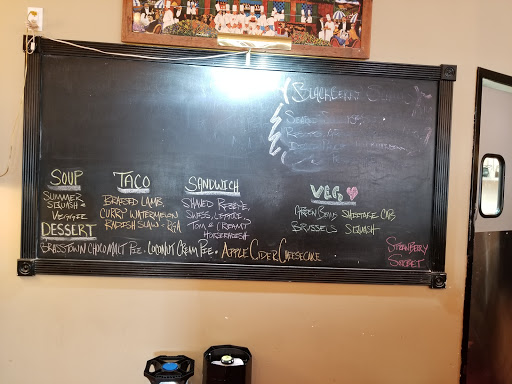 BLACKBERRY
SOUP
SUMMER
SQUASH &
VEGGIE
TACO
BRAISED LAMB,
CURRY WATERMELON
RADISH SLAW
SANDWICH
SHAVED RIBEYE,
SWISS, LETTUCE,
TOM & CREAMY
HORSERADISH
VEG
GREEN BEANS SHIITAKE
BRUSSELS SQUASH
DESSERT
BRASSTOWN CHOCO MALT PIE. COCONUT CREAM PIE. APPLE CIDER CHEESECAKE
STRAWBERRY
SORBET